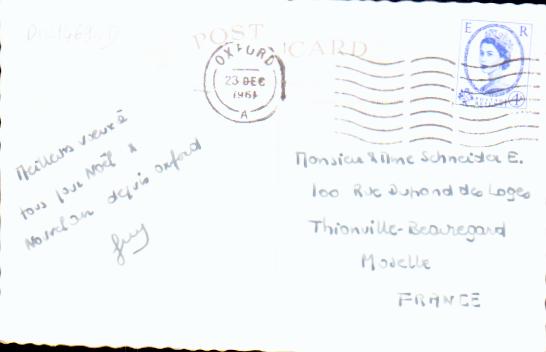 POST CARD
OXFORD
23 DEC
1961
A
E R
Meilleurs vœux à
tous pour Noël &
Nouvel an depuis Oxford
Guy
Monsieur & Mme Schneider E.
100 Rue Dupond des Loges
Thionville-Beauregard
Moselle
FRANCE